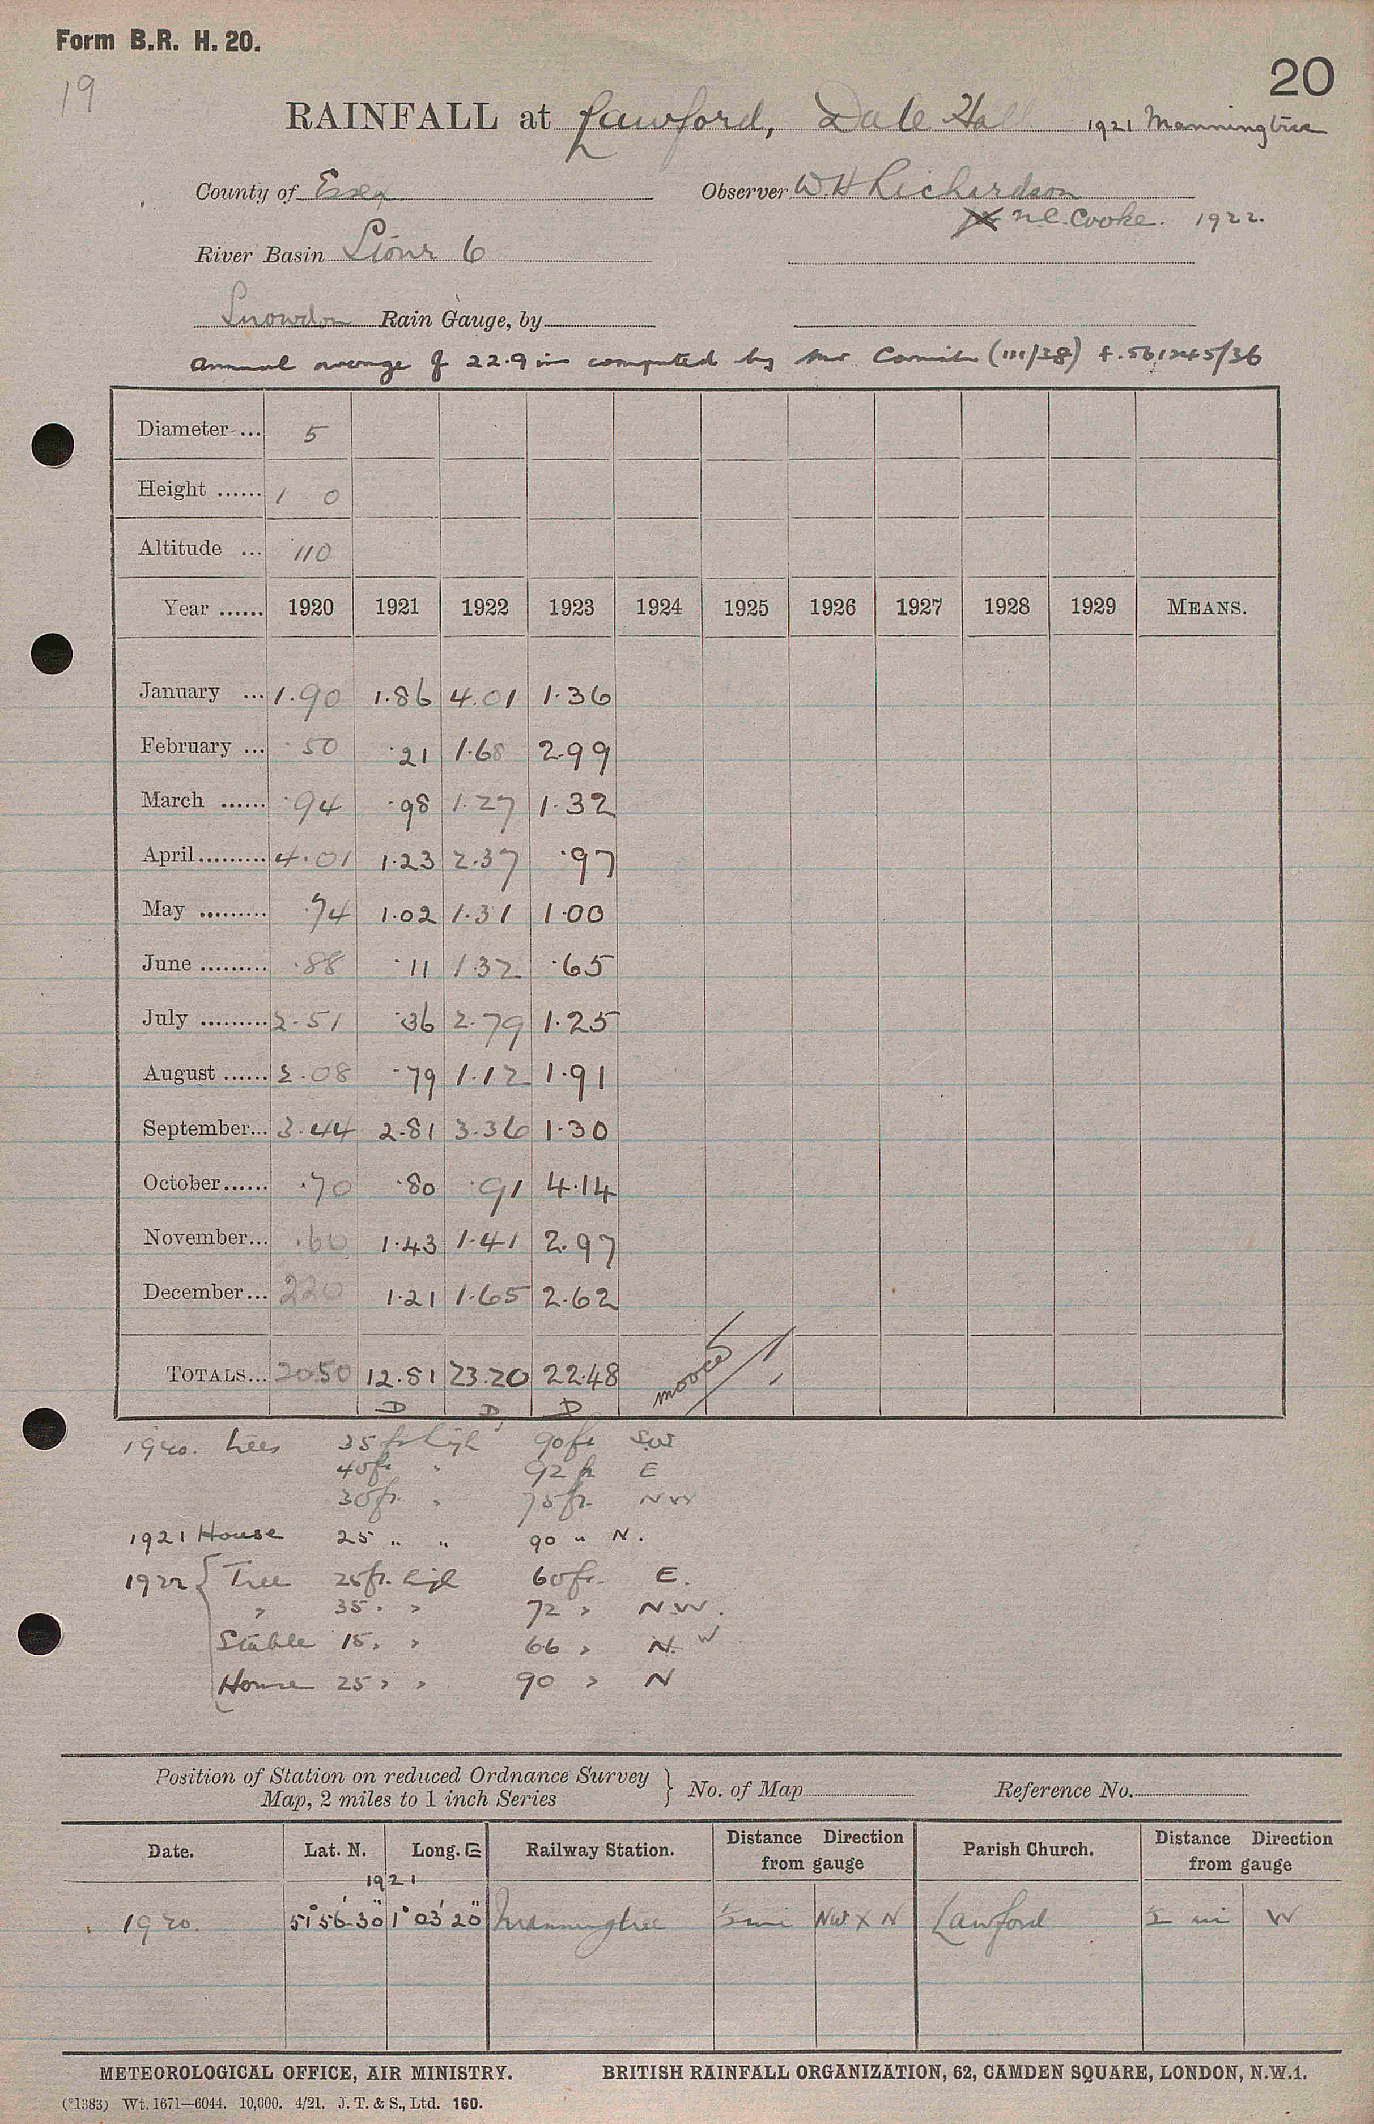 Form B.R. H. 20.
20
19
RAINFALL at Lawford, Dale Hall 1921 Manningtree
County of Essex Observer W.H Richardson
N.C. Cooke. 1922.
River Basin 6
Snowdon Rain Gauge, by
Annual average of 22.9 in computed by Mr (III/38)
Diameter ... 5
Height ...... 1 0
Altitude ... 110
Year ...... 1920 1921 1922 1923 1924 1925 1926 1927 1928 1929 MEANS.
January ... 1.90 1.86 4.01 1.36
February ... .50 .21 1.68 2.99
March ...... .94 .98 1.27 1.32
April ......... 4.01 1.23 2.37 .97
May ......... .74 1.02 1.31 1.00
June ......... .88 .11 1.32 .65
July ......... 2.51 .36 2.79 1.25
August ...... 2.08 .79 1.12 1.91
September... 3.44 2.81 3.36 1.30
October...... .70 .80 .91 4.14
November... .60 1.43 1.41 2.97
December... 2.20 1.21 1.65 2.62
TOTALS... 20.50 12.81 23.20 22.48
D D D
1920. trees 35 ft high 90 ft SW
40 ft " 92 ft E
30 ft. " 75 ft. NW
1921 House 25 " " 90 " N.
1922 { Tree 25 ft. high 60 ft. E.
" 35 " " 72 " N.W.
Stable 15 " " 66 " N. W
House 25 " " 90 " N
Position of Station on reduced Ordnance Survey
Map, 2 miles to 1 inch Series } No. of Map Reference No.
Date. Lat. N. Long. E Railway Station. Distance Direction from gauge Parish Church. Distance Direction from gauge
1921
1920. 51° 56' 30" 1° 03' 20" Manningtree ½ mi NW X N Lawford ½ mi W
METEOROLOGICAL OFFICE, AIR MINISTRY. BRITISH RAINFALL ORGANIZATION, 62, CAMDEN SQUARE, LONDON, N.W.1.
(*1383) Wt. 1671—6044. 10,000. 4/21. J. T. & S., Ltd. 160.